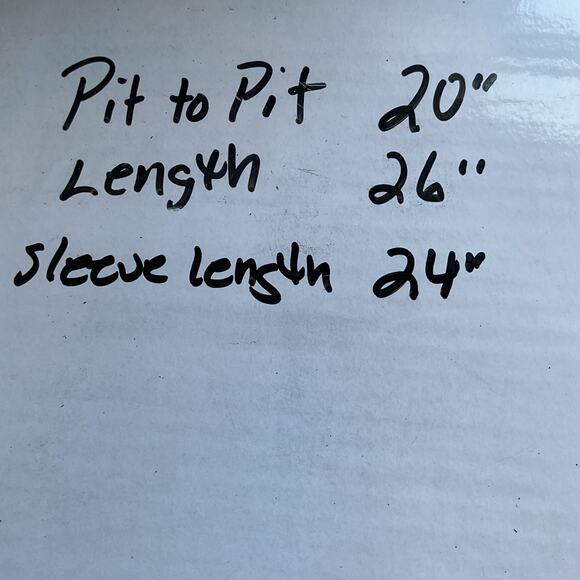 Pit to Pit 20"
Length 26"
Sleeve length 24"